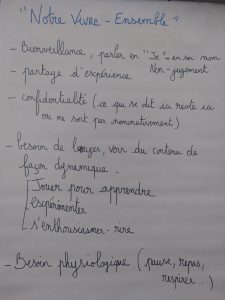 "Notre Vivre-Ensemble"
- Bienveillance, parler en "Je" → en son nom
Non-jugement
- partage d'expérience
- confidentialité (ce qui se dit ici reste ici
ou ne sort pas nominativement)
- besoin de bouger, voir du contenu de
façon dynamique.
Jouer pour apprendre
expérimenter
s'enthousiasmer - rire
- Besoin physiologique (pause, repas,
respirer...)